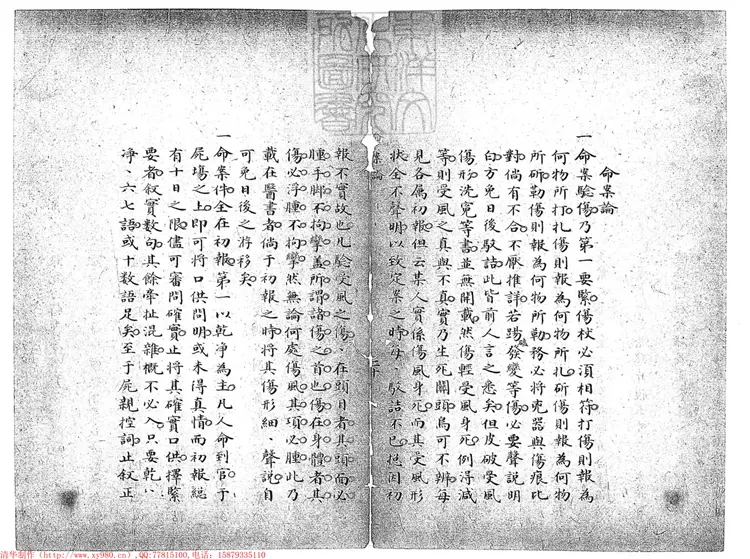 命案論
一命案驗傷乃第一要緊傷杖必須相符打傷則報為
何物所打扎傷則報為何物所扎斫傷則報為何物
所斫勒傷則報為何物所勒務必將兇器與傷痕比
對倘有不合不厭推詳若踢發變等傷必要聲說明
白方免日後駁詰此皆前人言之悉矣但皮破受風
傷形洗冤等書並無開載然傷輕受風身死例得減
等則受風之真與不真實乃生死關頭焉可不辨每
見各屬初報但云某人實係傷風身死而其受風形
狀全不聲明以致定案之時每駁詰不已抱固初
報不實故也凡驗受風之傷在頭目者其頭面必
腫手脚不拘攣蓋所謂諸傷之首也傷在身體者其
傷必浮腫不拘攣然無論何處傷風其項必腫此乃
載在醫書者倘于初報之時將其傷形細聲說自
可免日後之游移矣
一命案件全在初報第一以乾淨為主凡人命到官于
屍場之上即可將口供問明或未得真情而初報總
有十日之限儘可審問確實止將其確實口供擇緊
要者叙實數句其餘牽扯混雜概不必入只要乾乾
淨淨六七語或十數語足矣至于屍親控詞止叙正
東洋文
化研究
所圖書
清华制作（http://www.xy980.cn）,QQ:77815100,电话：15879335110